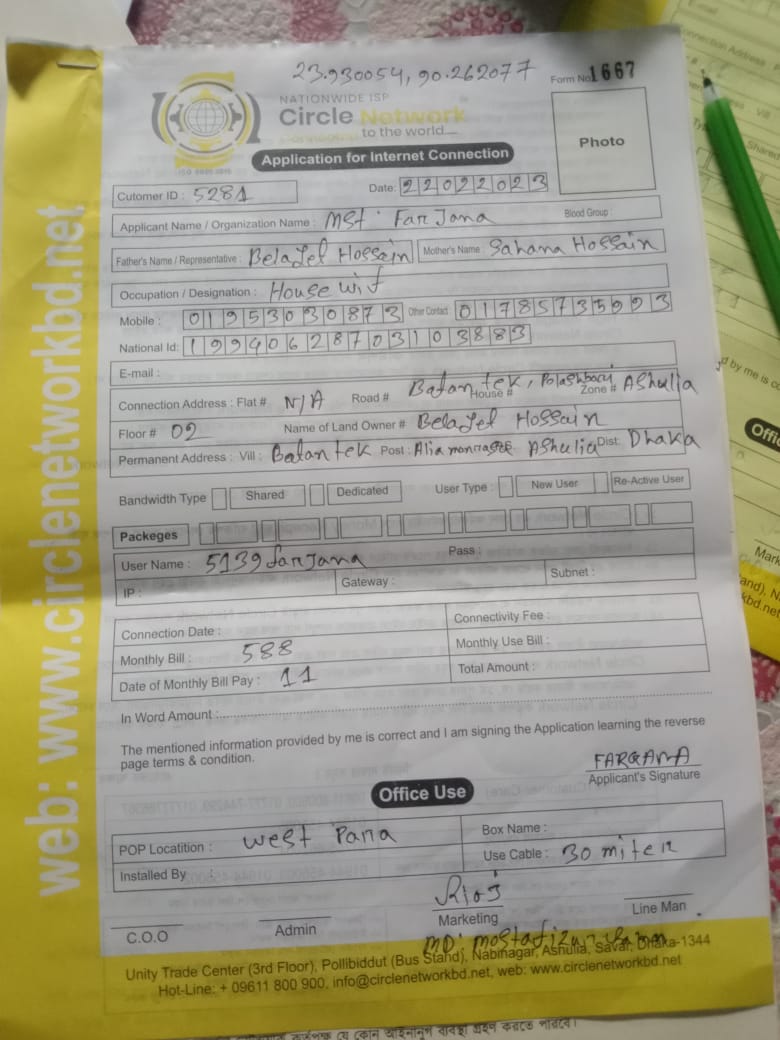 23.930054, 90.262077
Form No. 1667
NATIONWIDE ISP
Circle Network
Connecting to the world....
ISO 9001:2015
Photo
Application for Internet Connection
Cutomer ID : 5281 Date: 22022023
Applicant Name / Organization Name : MST. FarJana Blood Group :
Father's Name / Representative : Belalel Hossain Mother's Name : Sahana Hossain
Occupation / Designation : House wif
Mobile : 01953030873 Other Contact 01785735993
National Id: 19940628703103883
E-mail :
Connection Address : Flat # N/A Road # Batan tek, Polashbari House # Zone # AShulia
Floor # 02 Name of Land Owner # Belalel Hossain
Permanent Address : Vill : Batan tek Post : Alia AShulia Dist: Dhaka
Bandwidth Type Shared Dedicated User Type : New User Re-Active User
Packeges
User Name : 5139farJana Pass :
IP : Gateway : Subnet :
Connection Date : Connectivity Fee :
Monthly Bill : 588 Monthly Use Bill :
Date of Monthly Bill Pay : 11 Total Amount :
In Word Amount :
The mentioned information provided by me is correct and I am signing the Application learning the reverse
page terms & condition.
FARGANA
Applicant's Signature
Office Use
POP Locatition : West Para Box Name :
Installed By : Use Cable : 30 miter
C.O.O Admin Marketing Line Man
MD: mostafizur rahman
Unity Trade Center (3rd Floor), Pollibiddut (Bus Stand), Nabinagar, Ashulia, Savar, Dhaka-1344
Hot-Line: + 09611 800 900, info@circlenetworkbd.net, web: www.circlenetworkbd.net
web: www.circlenetworkbd.net